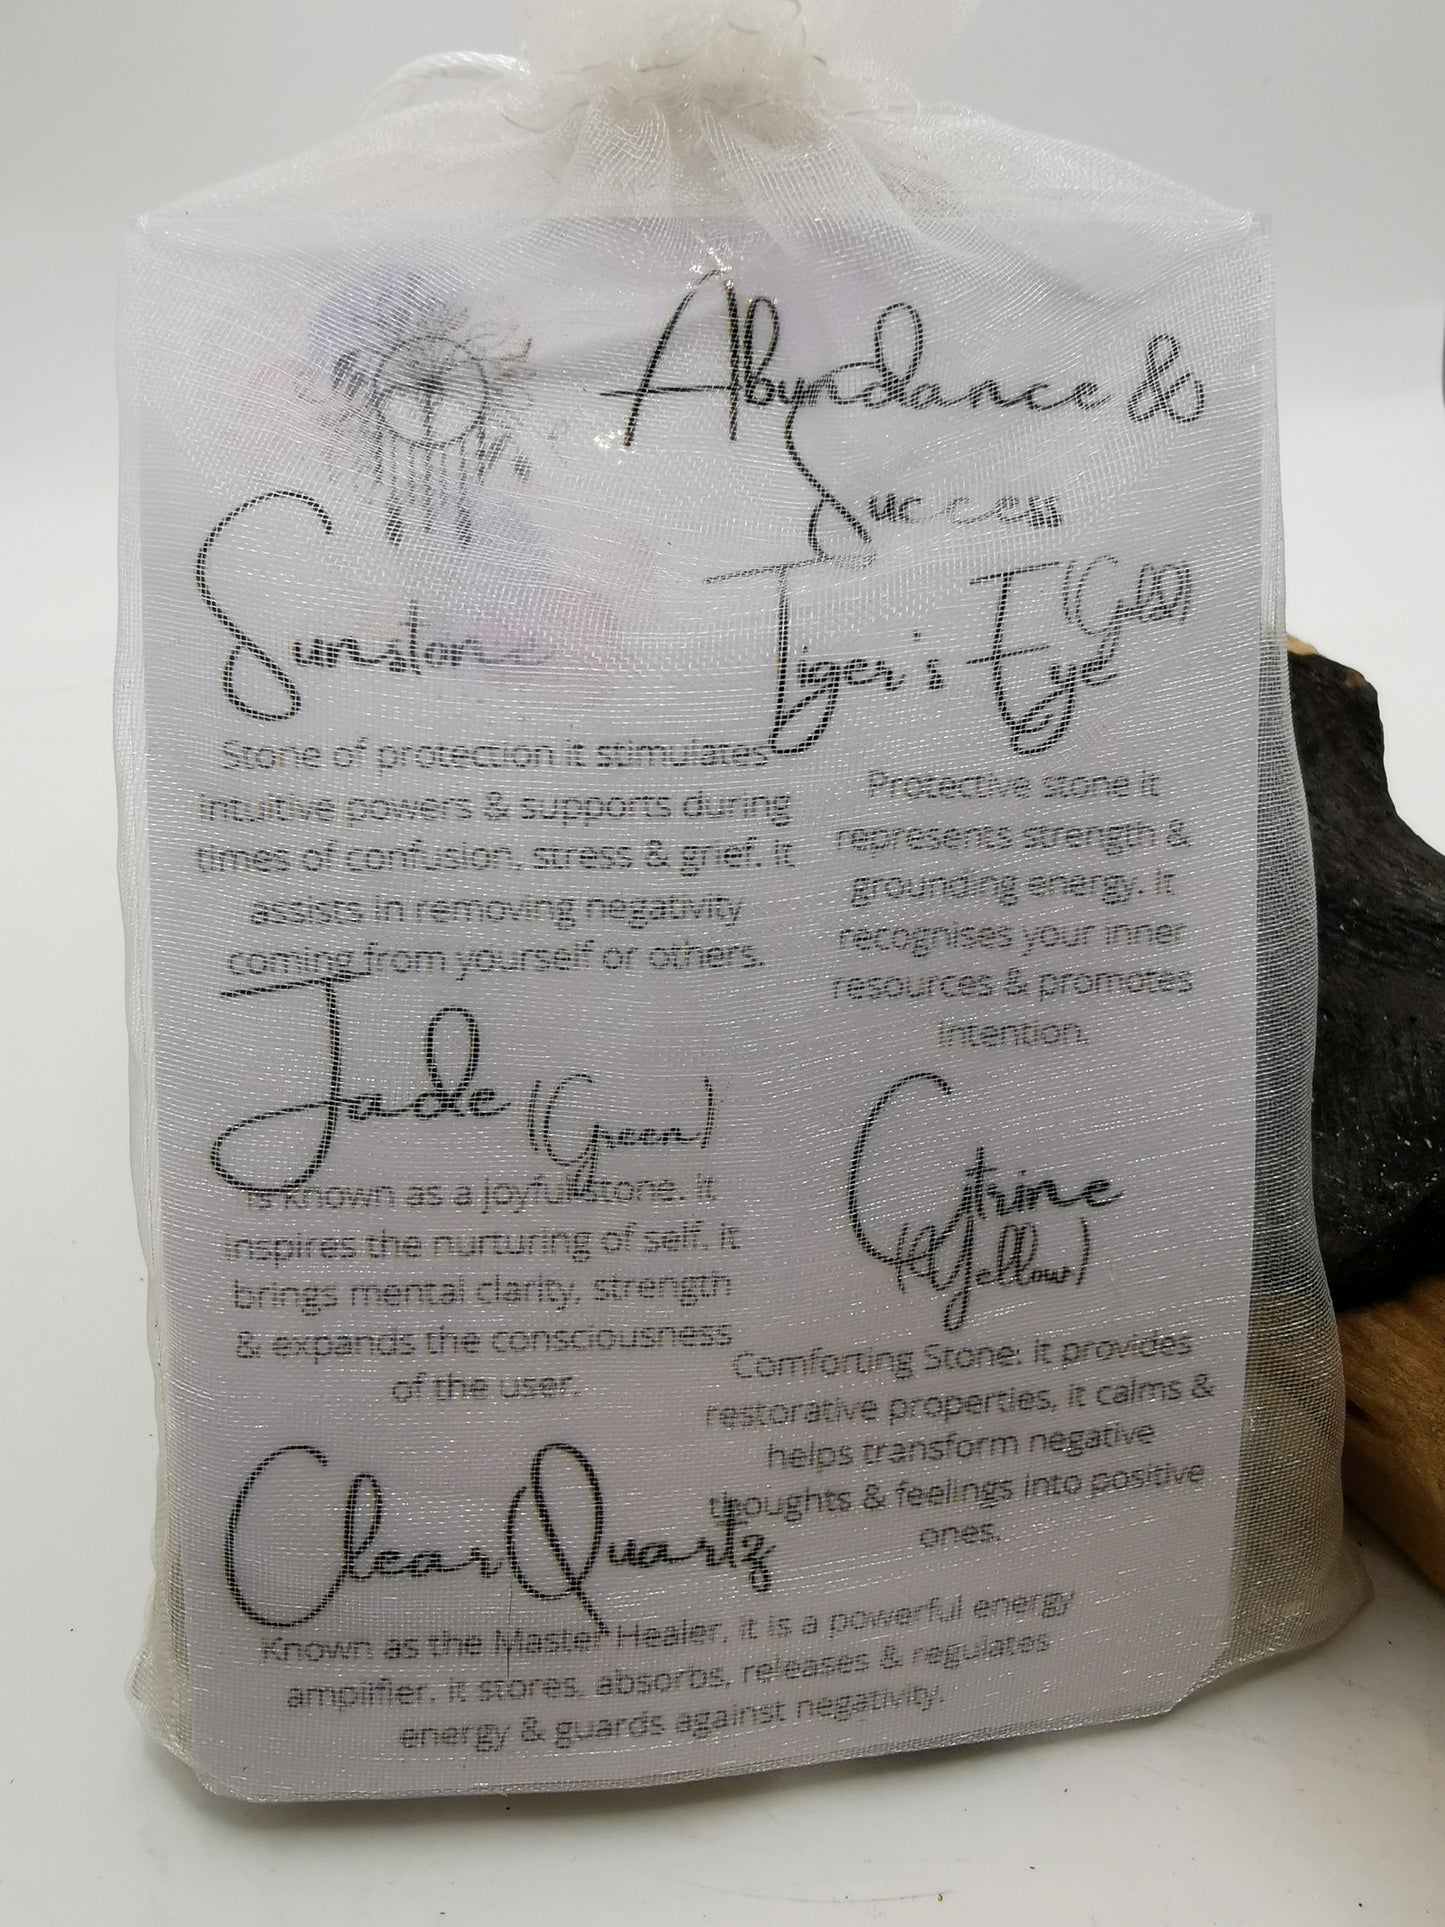 Abundance &
Success
Sunstone
Stone of protection it stimulates
intuitive powers & supports during
times of confusion, stress & grief. It
assists in removing negativity
coming from yourself or others.
Tiger's Eye (Gold)
Protective stone it
represents strength &
grounding energy. It
recognises your inner
resources & promotes
intention.
Jade (Green)
Is known as a joyful stone. It
inspires the nurturing of self. It
brings mental clarity, strength
& expands the consciousness
of the user.
Citrine
(Yellow)
Comforting Stone: It provides
restorative properties, it calms &
helps transform negative
thoughts & feelings into positive
ones.
Clear Quartz
Known as the Master Healer. It is a powerful energy
amplifier. It stores, absorbs, releases & regulates
energy & guards against negativity.